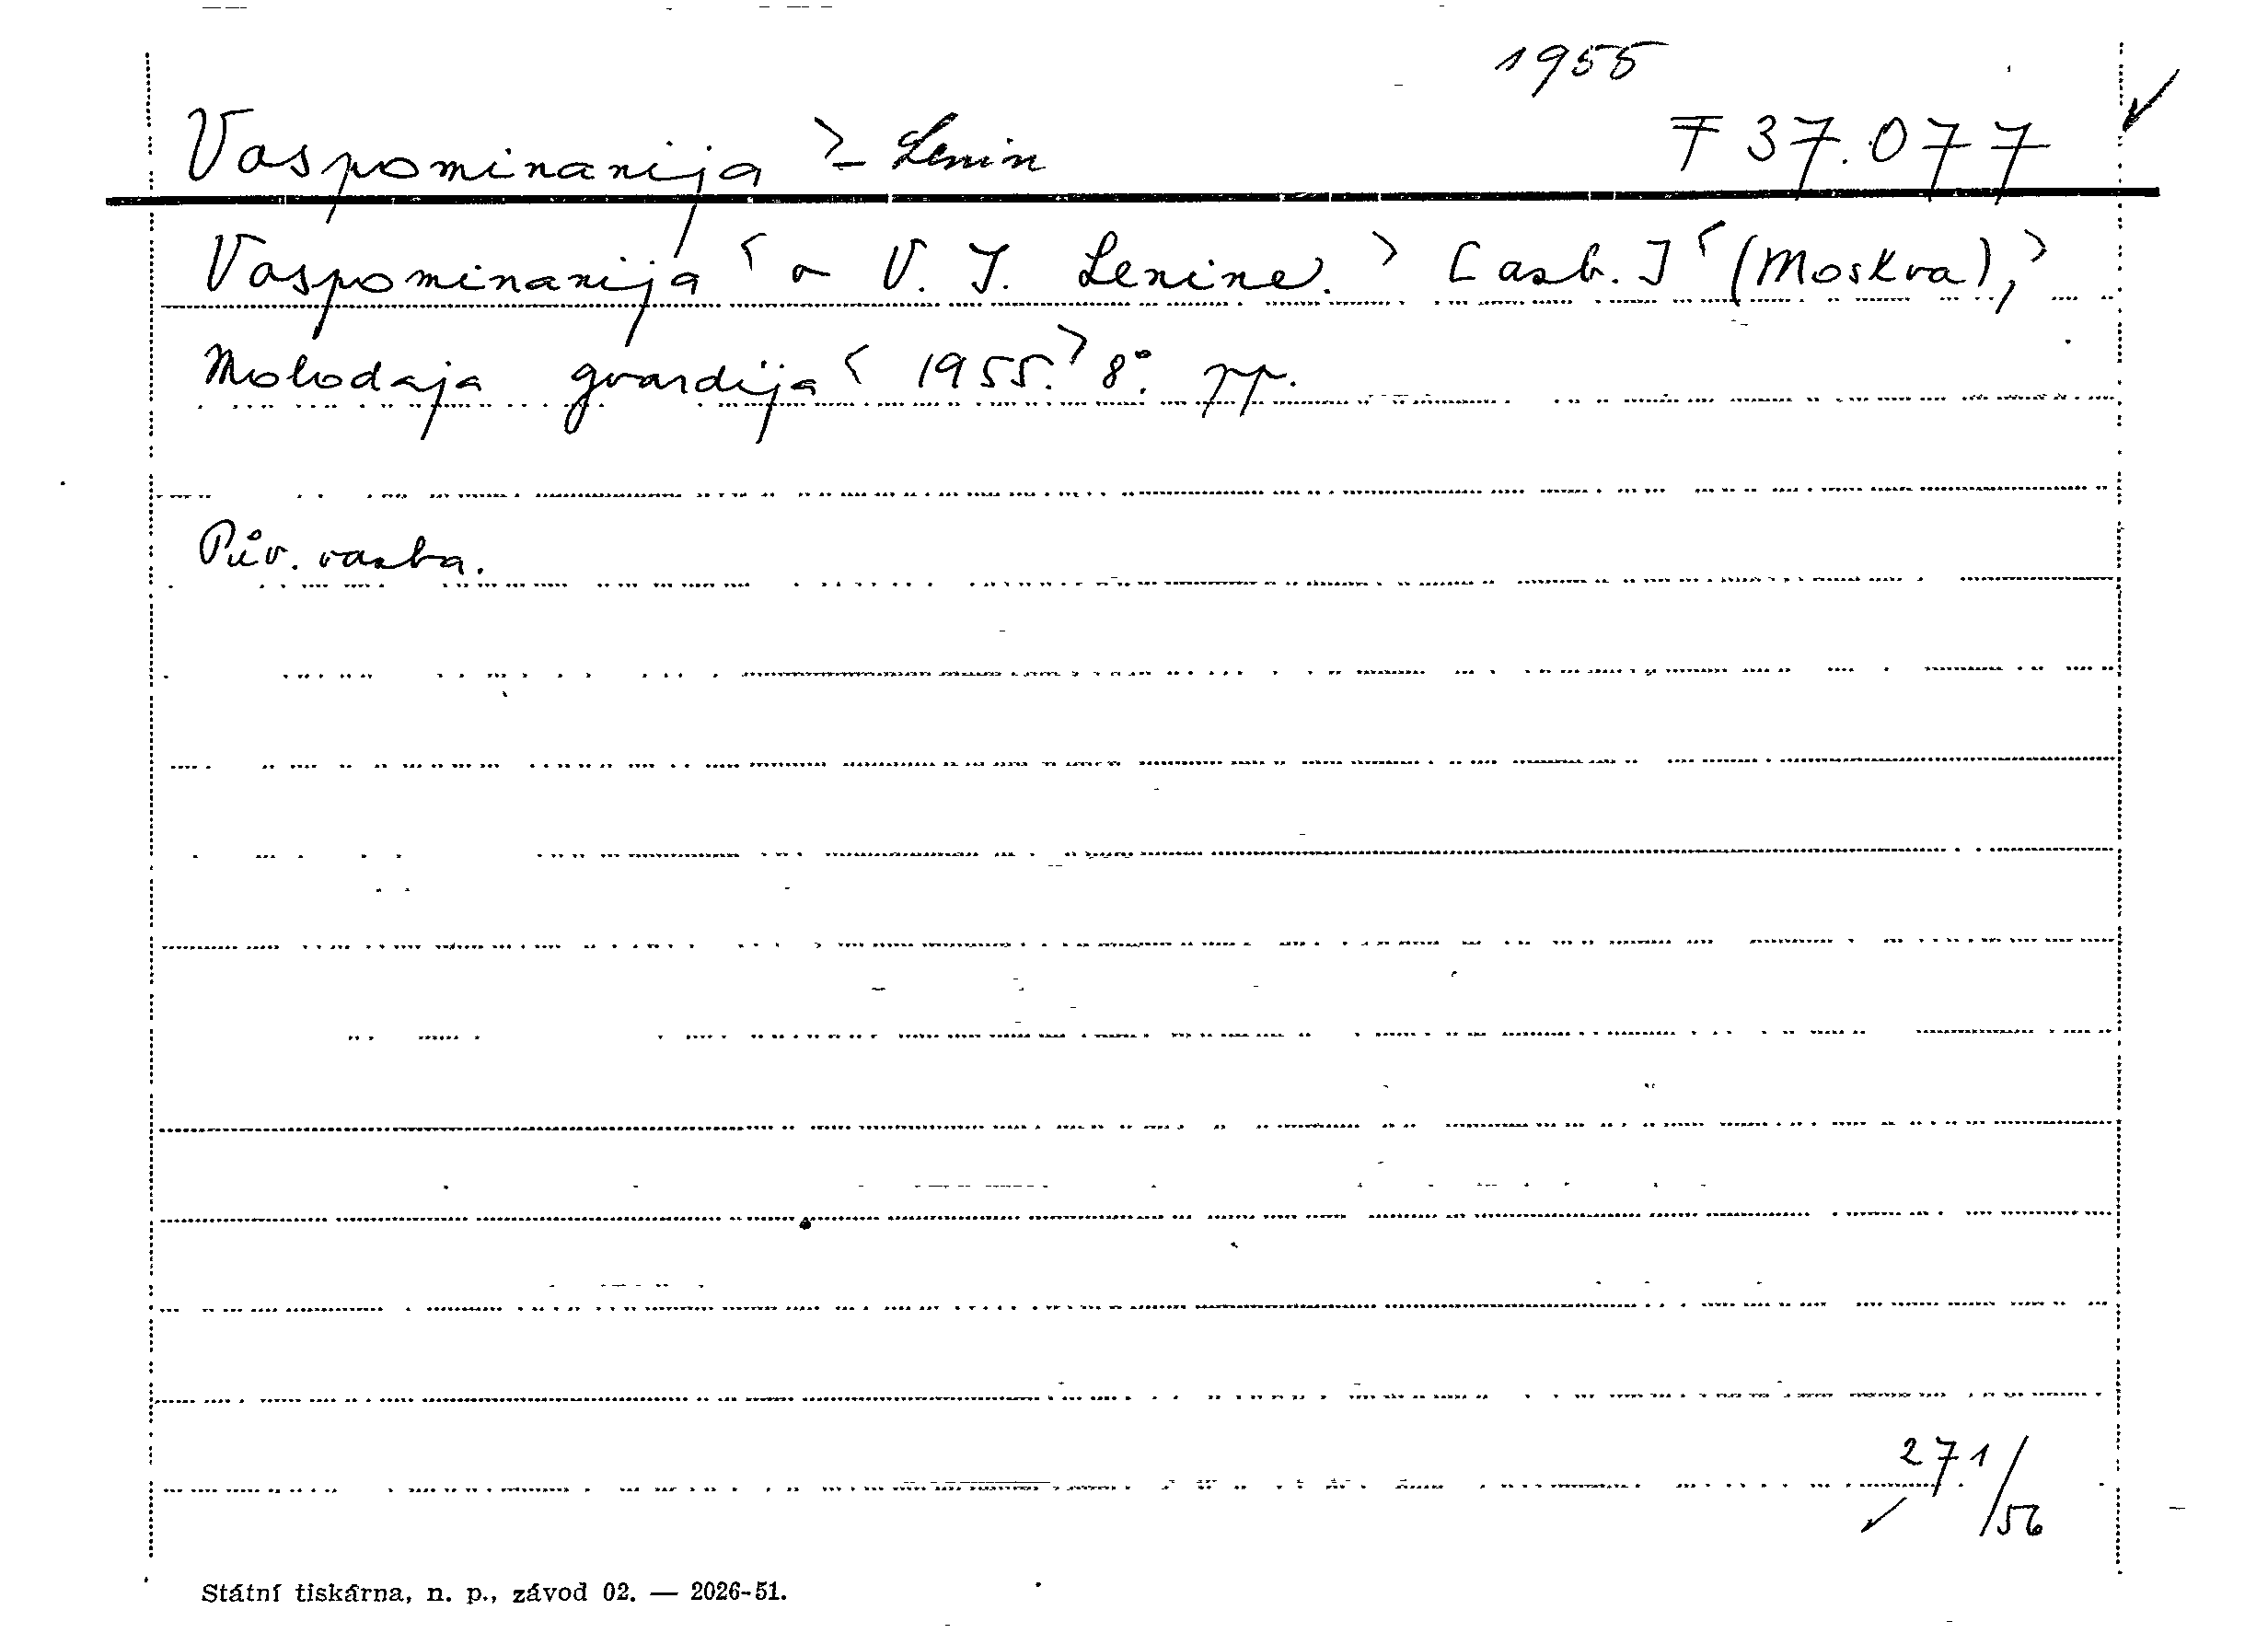 1955
Vospominanija > – Lenin F 37.077
Vospominanija < o V. I. Lenine. > [asb.] < (Moskva), >
Molodaja gvardija < 1955. > 8°. pp.
Pův. vazba.
271/56
Státní tiskárna, n. p., závod 02. — 2026-51.